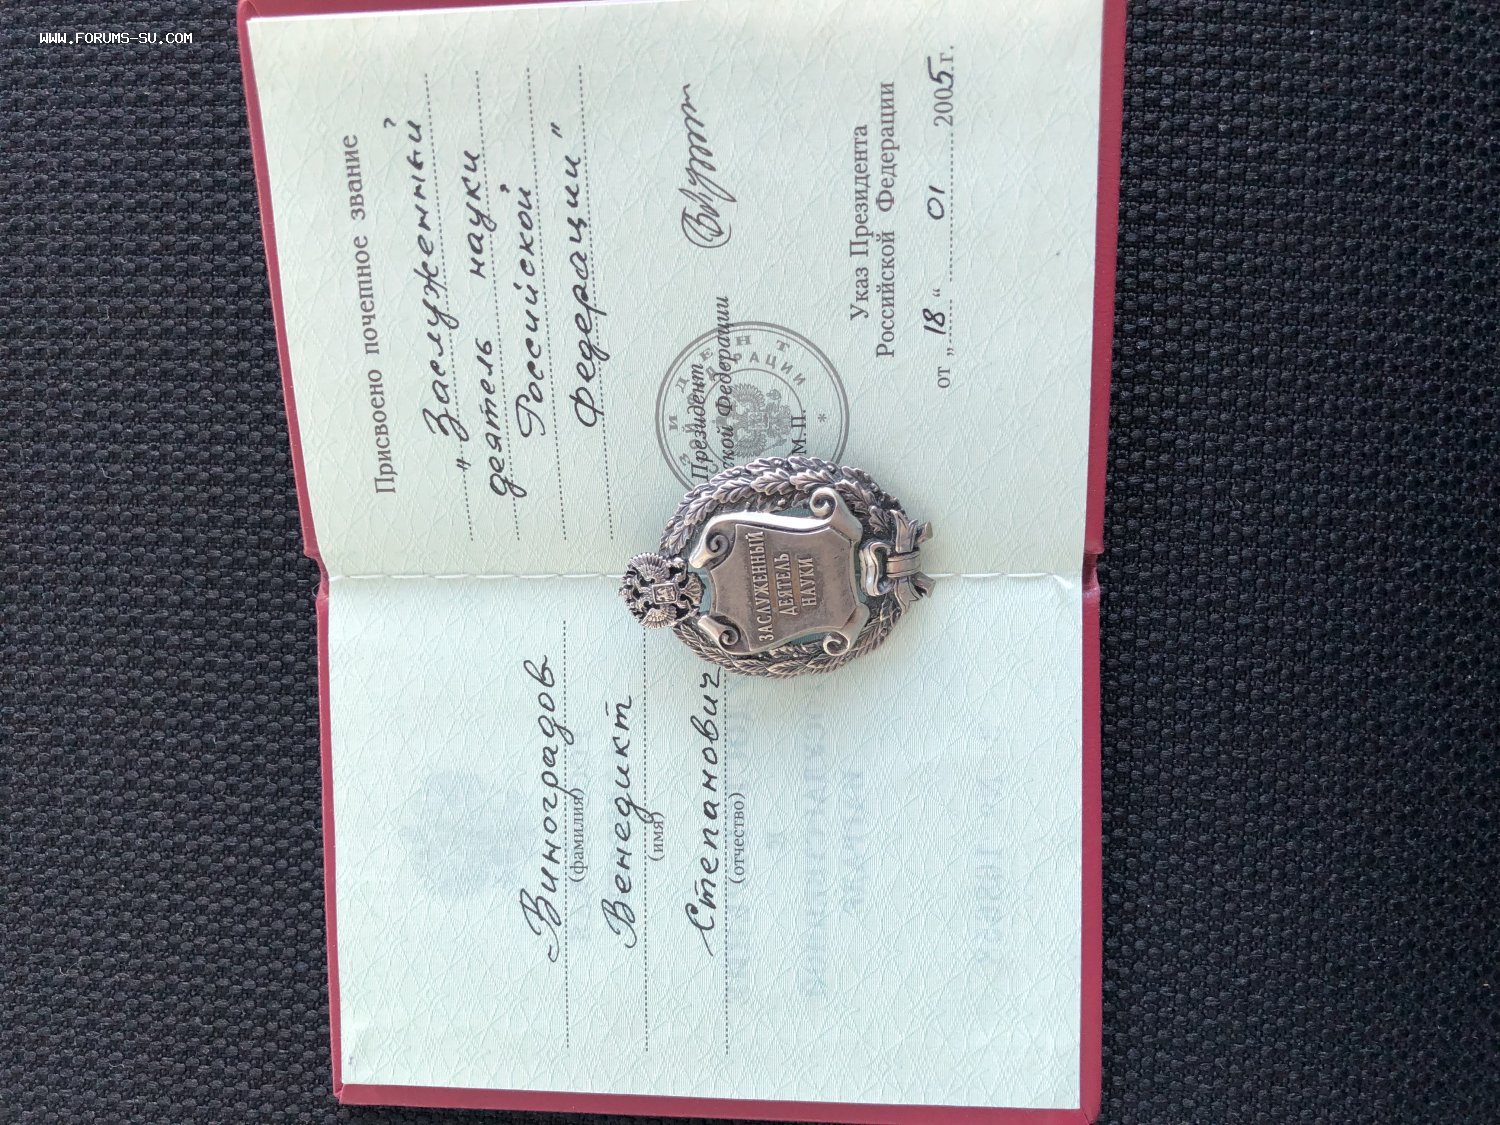 WWW.FORUMS-SU.COM
Виноградов
(фамилия)
Венедикт
(имя)
Степанович
(отчество)
Присвоено почетное звание
„Заслуженный
деятель науки
Российской
Федерации"
Президент
Федерации
М.П.
Указ Президента
Российской Федерации
от „18" 01 2005 г.
ЗАСЛУЖЕННЫЙ
ДЕЯТЕЛЬ
НАУКИ